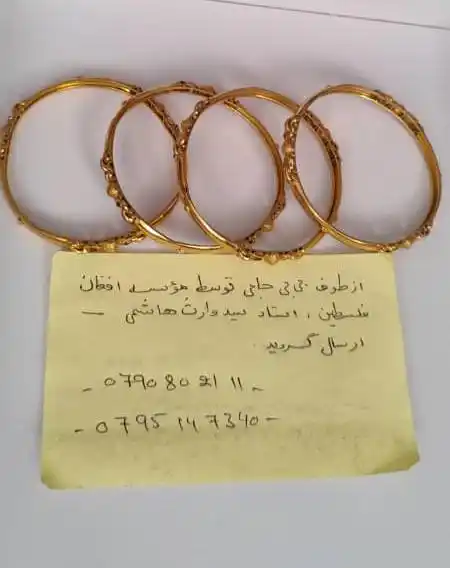 از طرف بی بی حاجی توسط مؤسسه افغان
فلسطین ، استاد سید وارث هاشمی —
ارسال گردید .
- 0790 80 21 11 -
- 0795 147340 -